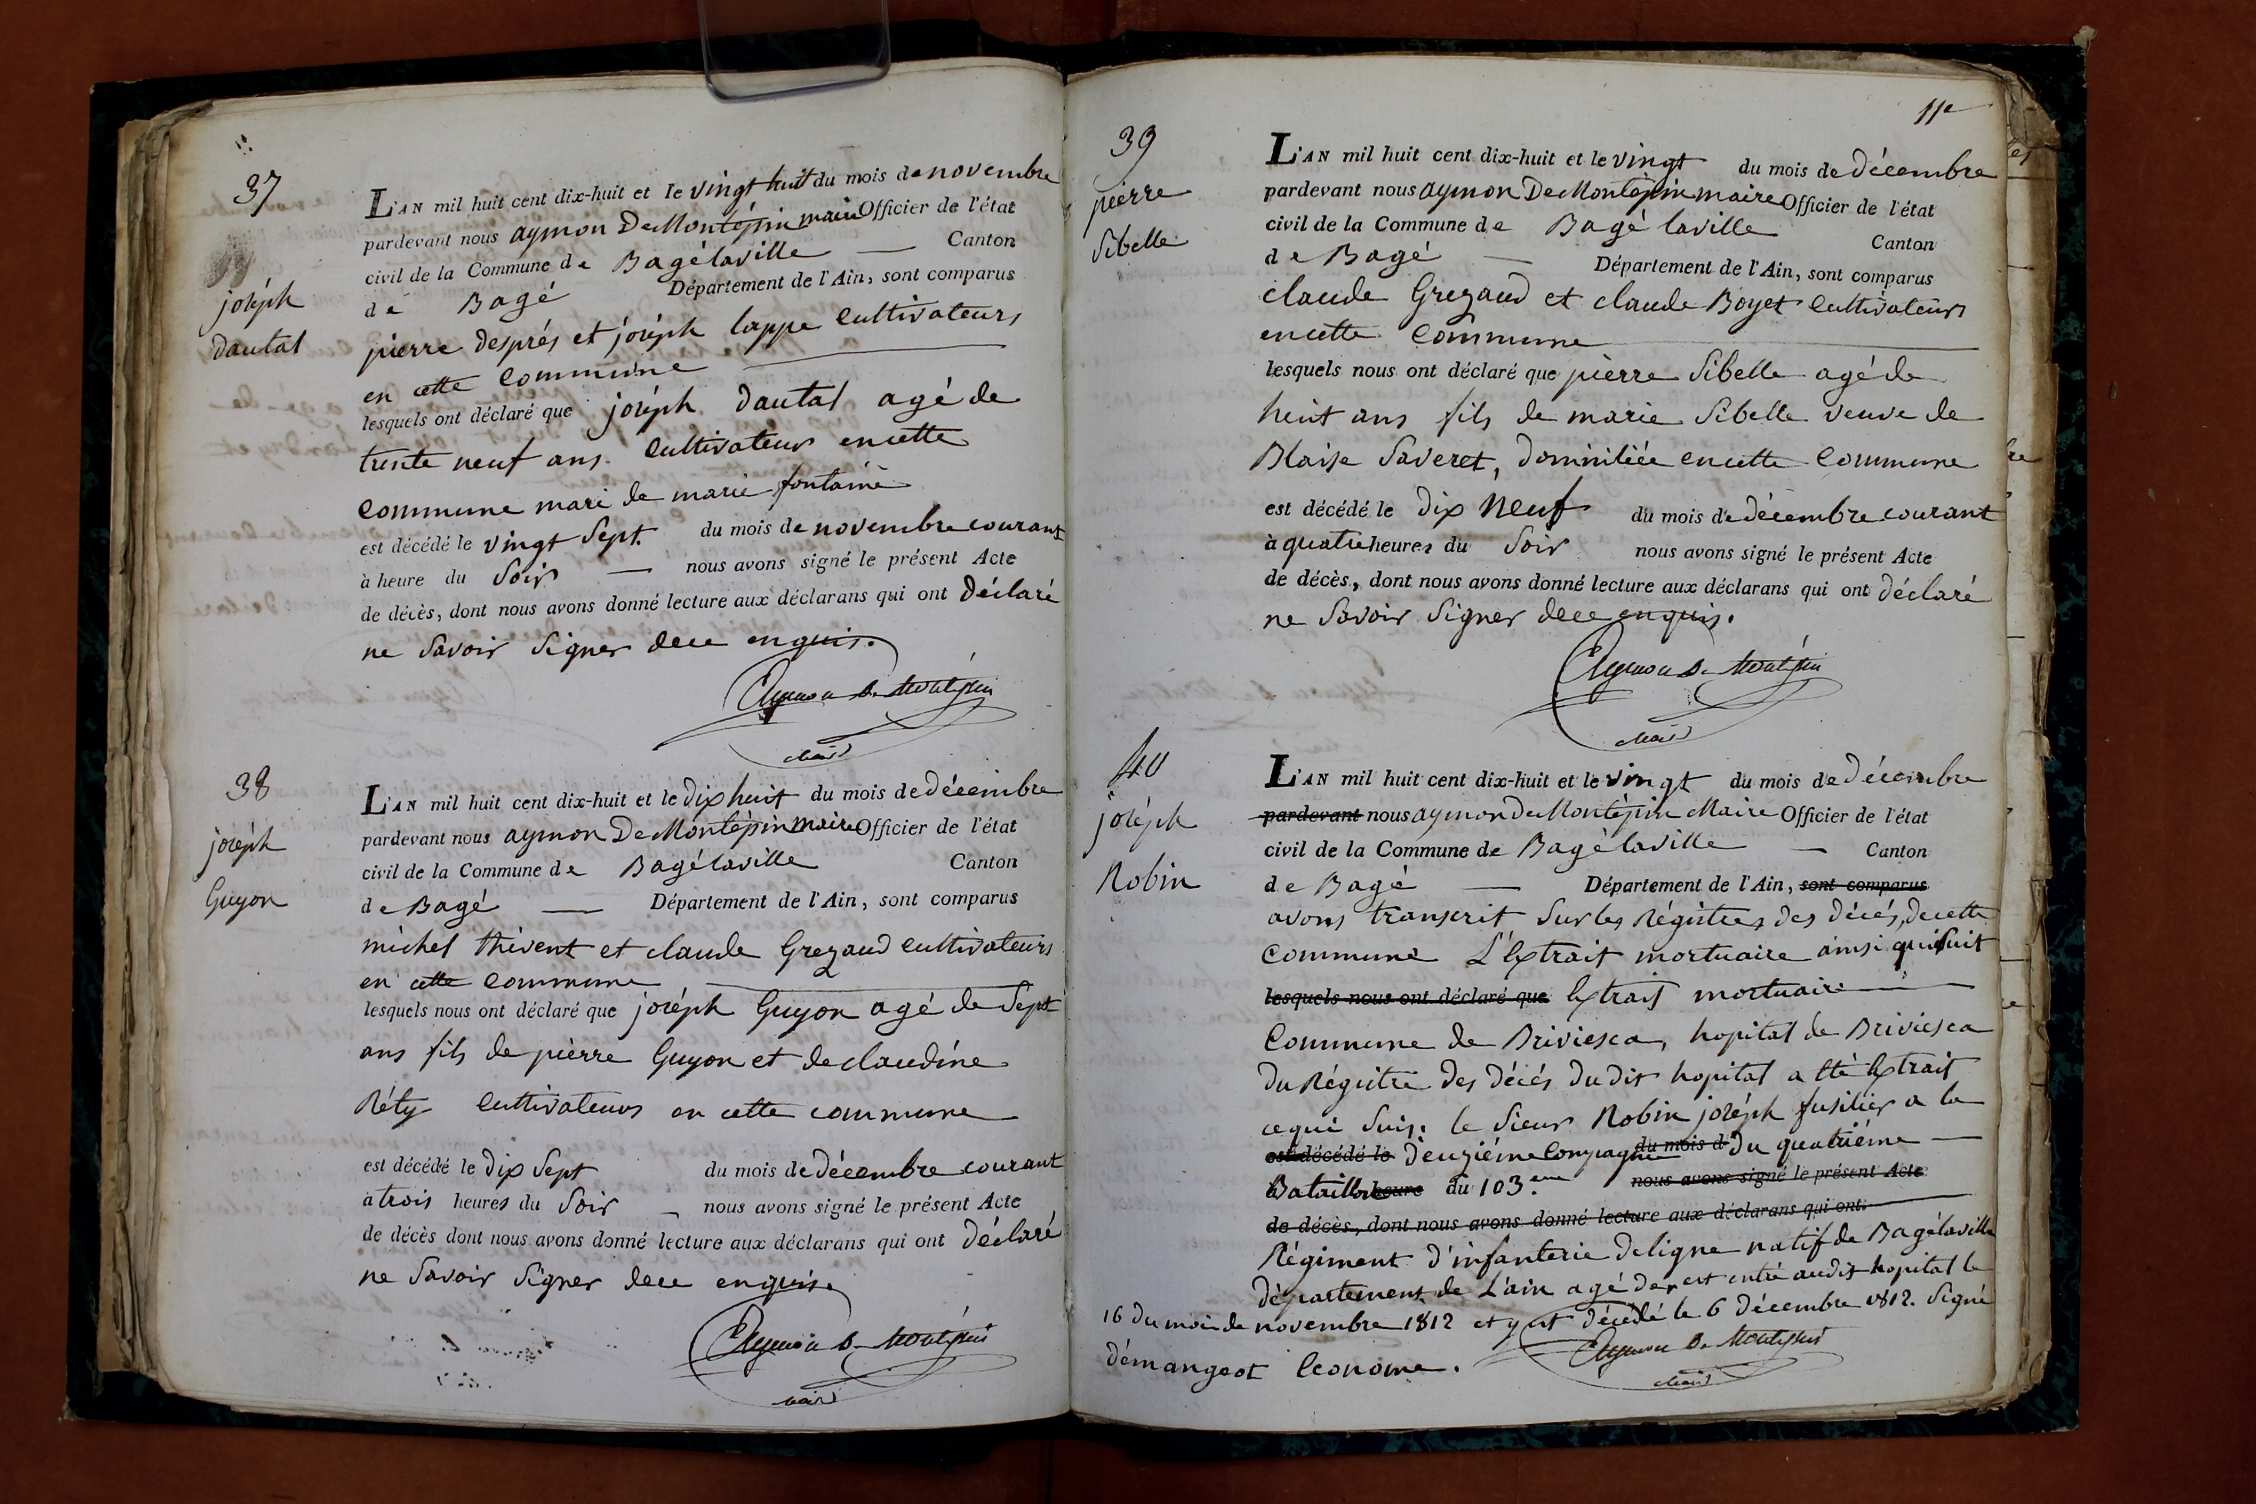 37
joséph
dautal
L'AN mil huit cent dix-huit et le vingt huit du mois de novembre
pardevant nous aymon DeMontépin maire Officier de l'état
civil de la Commune de Bagélaville — Canton
de Bagé Département de l'Ain, sont comparus
pierre després et joséph lappe cultivateurs
en cette commune
lesquels ont déclaré que joséph dautal agé de
trente neuf ans cultivateur encette
commune mari de marie fontaine
est décédé le vingt Sept. du mois de novembre courant
à heure du Soir — nous avons signé le présent Acte
de décès, dont nous avons donné lecture aux déclarans qui ont déclaré
ne Savoir Signer dece enquis.
Aymon De Montépin
maire
38
joséph
Guyon
L'AN mil huit cent dix-huit et le dix huit du mois de décembre
pardevant nous aymon DeMontépin maire Officier de l'état
civil de la Commune de Bagélaville Canton
de Bagé — Département de l'Ain, sont comparus
michel thévent et claude Grezaud cultivateurs
en cette commune
lesquels nous ont déclaré que joséph Guyon agé de Sept
ans fils de pierre Guyon et de claudine
Réty cultivateurs en cette commune
est décédé le dix Sept du mois de décembre courant
à trois heures du Soir — nous avons signé le présent Acte
de décès dont nous avons donné lecture aux déclarans qui ont déclaré
ne Savoir Signer dece enquis.
Aymon De Montépin
maire
11e
39
pierre
Sibelle
L'AN mil huit cent dix-huit et le vingt du mois de décembre
pardevant nous aymon DeMontépin maire Officier de l'état
civil de la Commune de Bagé laville Canton
de Bagé — Département de l'Ain, sont comparus
claude Grezaud et claude Boyet cultivateurs
encette commune
lesquels nous ont déclaré que pierre Sibelle agé de
huit ans fils de marie Sibelle veuve de
Blaise Saveret, domiciliée encette commune
est décédé le dix Neuf du mois de décembre courant
à quatre heures du Soir nous avons signé le présent Acte
de décès, dont nous avons donné lecture aux déclarans qui ont déclaré
ne Savoir Signer dece enquis.
Aymon De Montépin
maire
40
joséph
Robin
L'AN mil huit cent dix-huit et le vingt du mois de décembre
pardevant nous aymon DeMontépin Maire Officier de l'état
civil de la Commune de Bagélaville — Canton
de Bagé — Département de l'Ain, sont comparus
avons transcrit Sur les Régistres des décés, decette
commune L'extrait mortuaire ainsi qui Suit
lesquels nous ont déclaré que Extrait mortuaire
Commune de Briviesca, hopital de Briviesca
du Régistre des décés dudit hopital a été Extrait
cequi Suit. le Sieur Robin joséph fusilier a la
est décédé le deuziéme Compagnie du mois d du quatriéme —
Bataillon heure du 103.eme nous avons signé le présent Acte
de décès, dont nous avons donné lecture aux déclarans qui ont
Régiment d'infanterie deligne natif de Bagélaville
département de L'ain agé de est entré audit hopital le
16 du mois de novembre 1812 et y est décédé le 6 décembre 1812. Signé
démangeot Econome.
Aymon De Montépin
maire